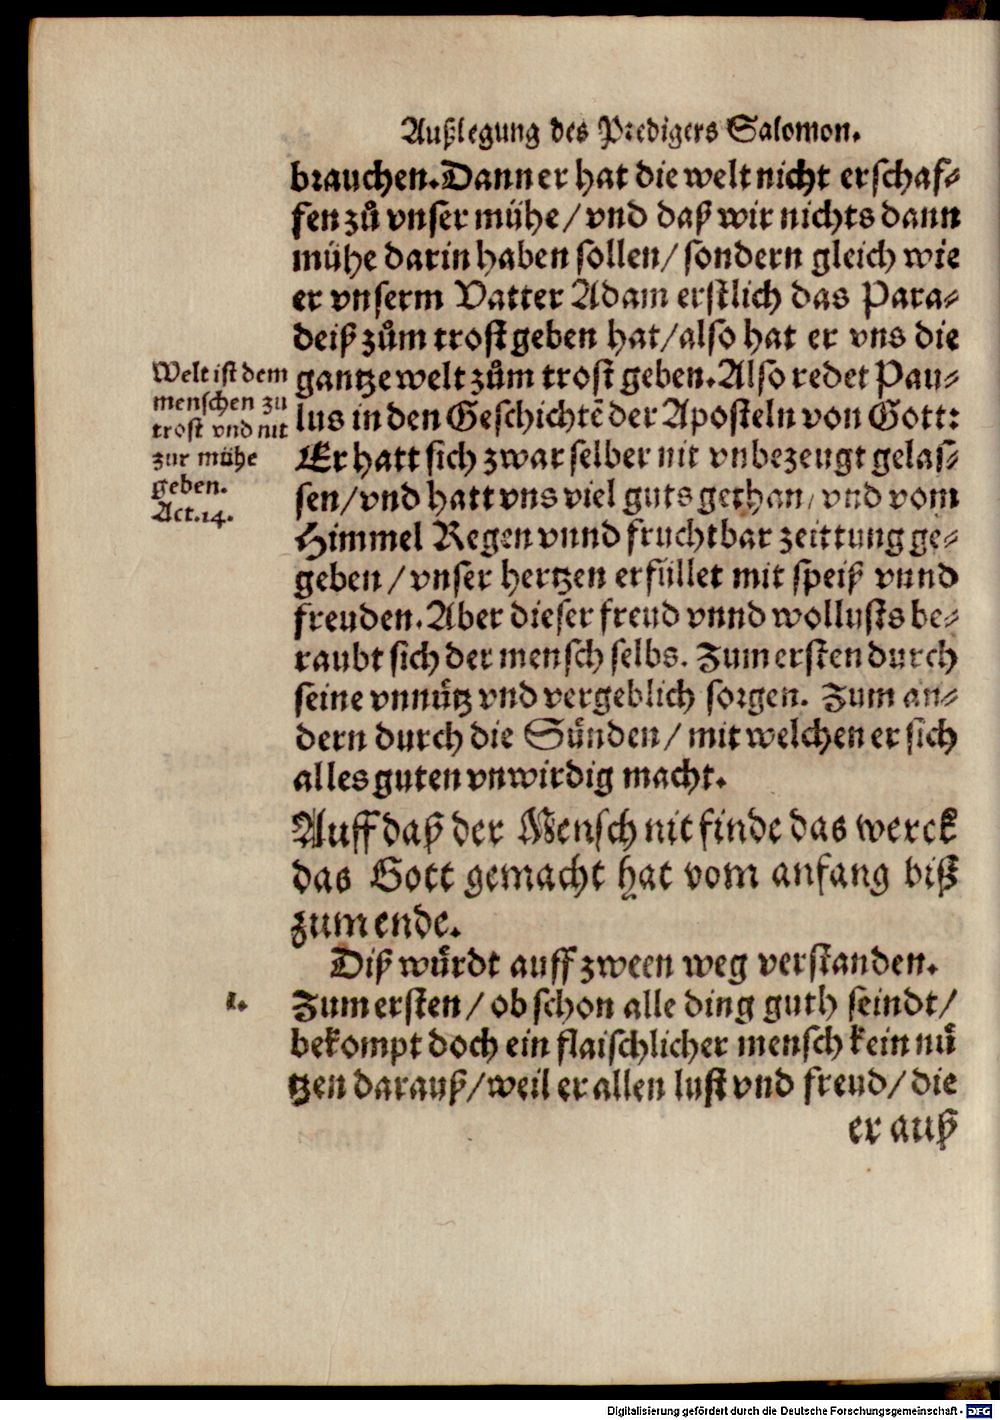 Außlegung des Predigers Salomon.
brauchen. Dann er hat die welt nicht erschaf-
fen zů vnser mühe / vnd daß wir nichts dann
mühe darin haben sollen / sondern gleich wie
er vnserm Vatter Adam erstlich das Para-
deiß zům trost geben hat / also hat er vns die
gantze welt zům trost geben. Also redet Pau-
lus in den Geschichtẽ der Aposteln von Gott:
Er hatt sich zwar selber nit vnbezeugt gelas-
sen / vnd hatt vns viel guts gethan / vnd vom
Himmel Regen vnnd fruchtbar zeittung ge-
geben / vnser hertzen erfüllet mit speiß vnnd
freuden. Aber dieser freud vnnd wollusts be-
raubt sich der mensch selbs. Zum ersten durch
seine vnnütz vnd vergeblich sorgen. Zum an-
dern durch die Sünden / mit welchen er sich
alles guten vnwirdig macht.
Welt ist dem
menschen zu
trost vnd nit
zur mühe
geben.
Act. 14.
Auff daß der Mensch nit finde das werck
das Gott gemacht hat vom anfang biß
zum ende.
Diß würdt auff zween weg verstanden.
1.
Zum ersten / ob schon alle ding guth seindt /
bekompt doch ein flaischlicher mensch kein nü
tzen darauß / weil er allen lust vnd freud / die
er auß
Digitalisierung gefördert durch die Deutsche Forschungsgemeinschaft - DFG